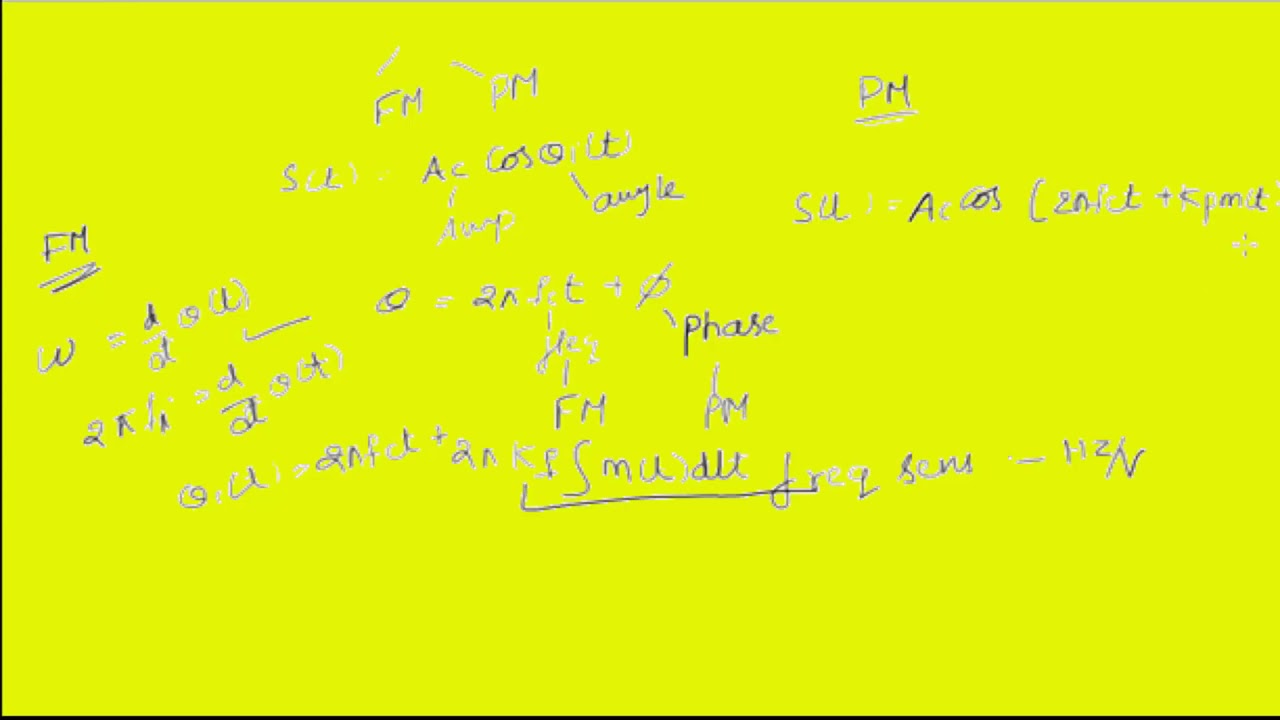 FM PM
PM
S(t) = Ac Cos θi(t)
Amp
angle
S(t) = Ac cos (2πfct + Kpm(t)
FM
ω = d/dt θ(t)
θ = 2πfct + ϕ
freq
phase
2πfi = d/dt θ(t)
FM PM
θi(t) = 2πfct + 2πKf ∫m(t)dt freq sens - HZ/V